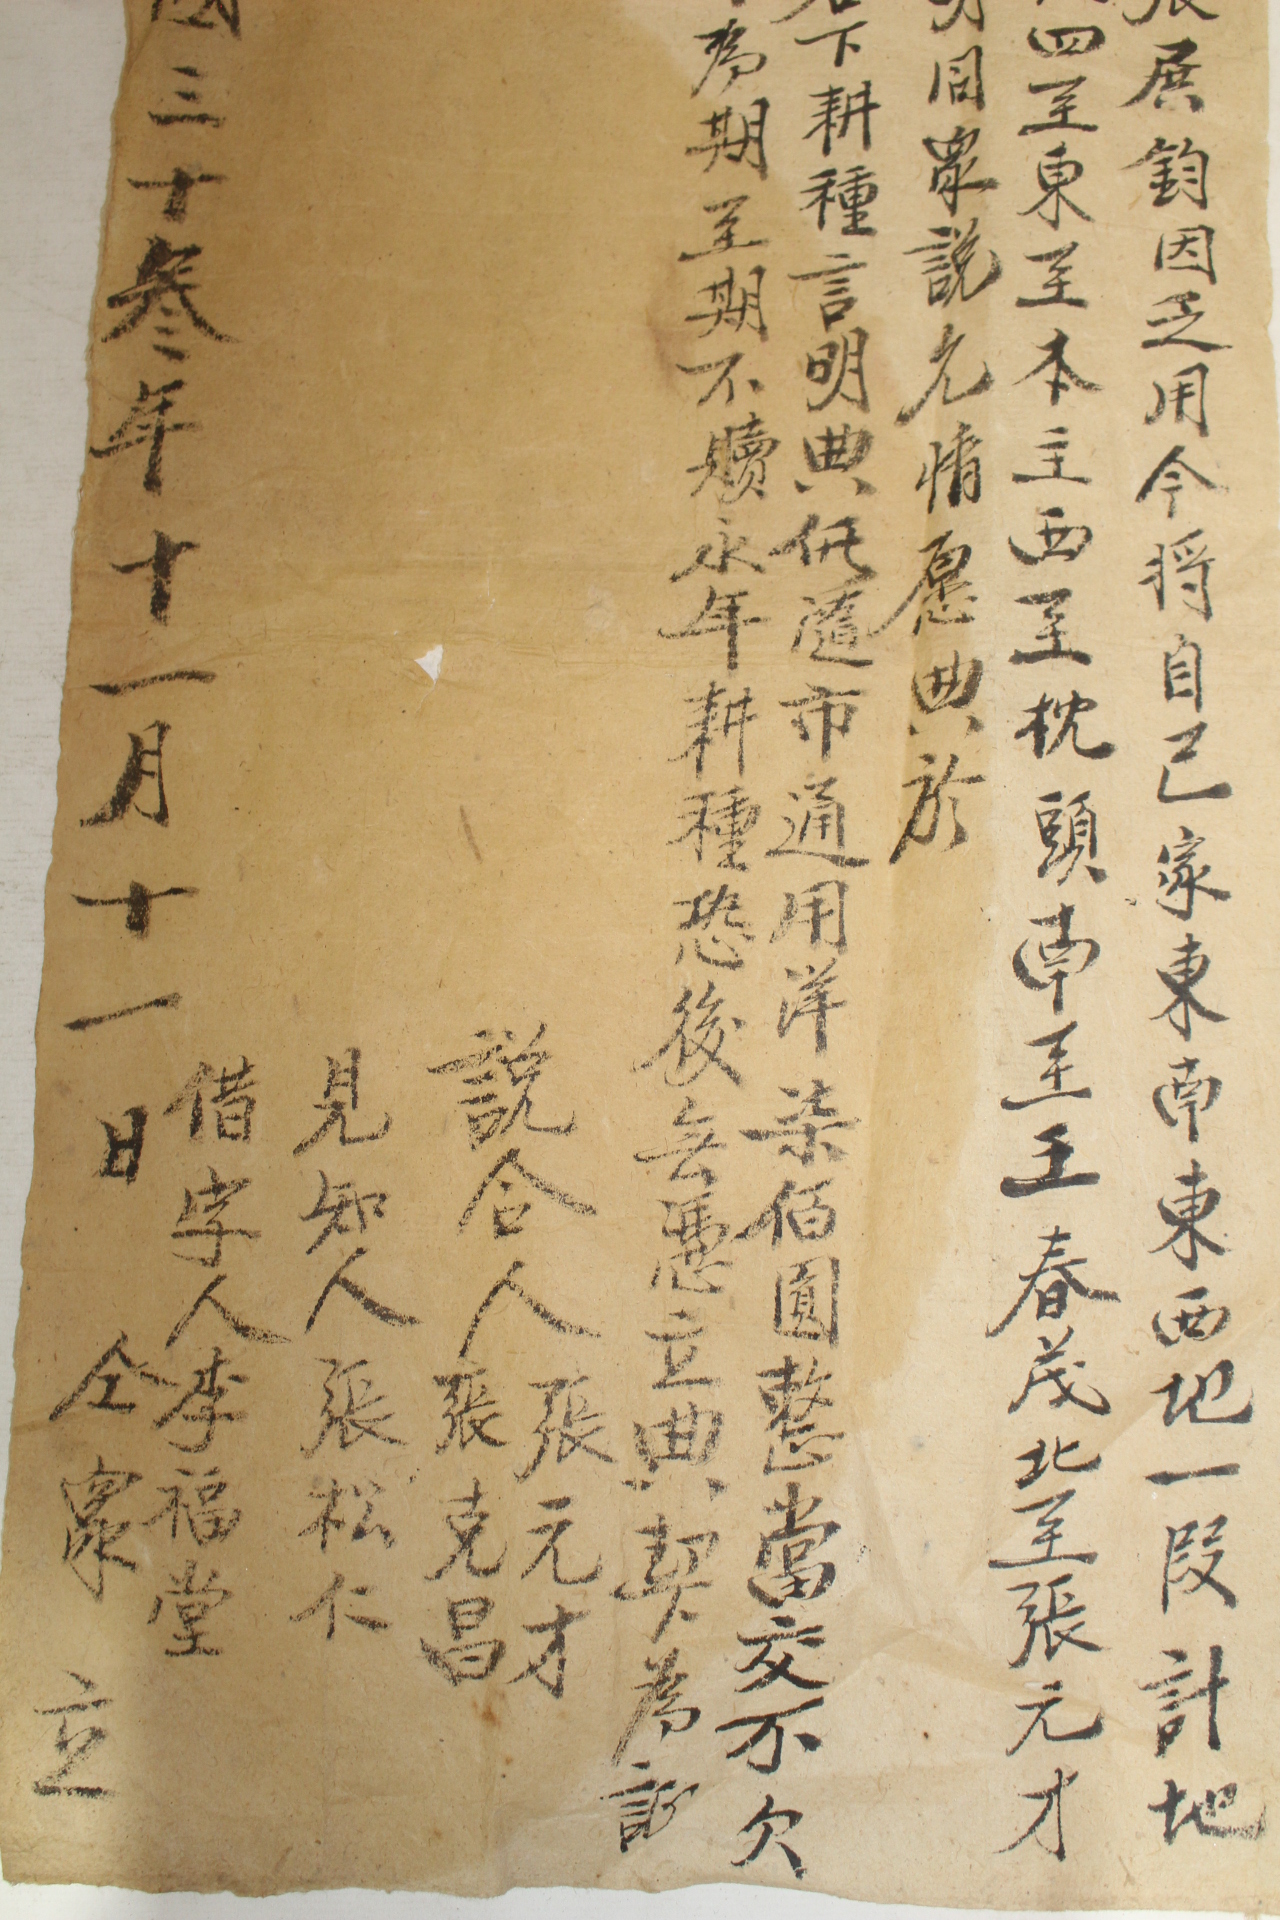 張展鈞因乏用今將自己家東南東西地一段計地
四至東至本主西至枕頭南至王春茂北至張元才
明同眾說允情愿典於
名下耕種言明典價隨市通用洋柒佰圓整當交不欠
為期至期不贖永年耕種恐後無憑立典契為証
說合人張元才
張克昌
見知人張松仁
借字人李福堂
國三十叁年十一月十一日仝眾立